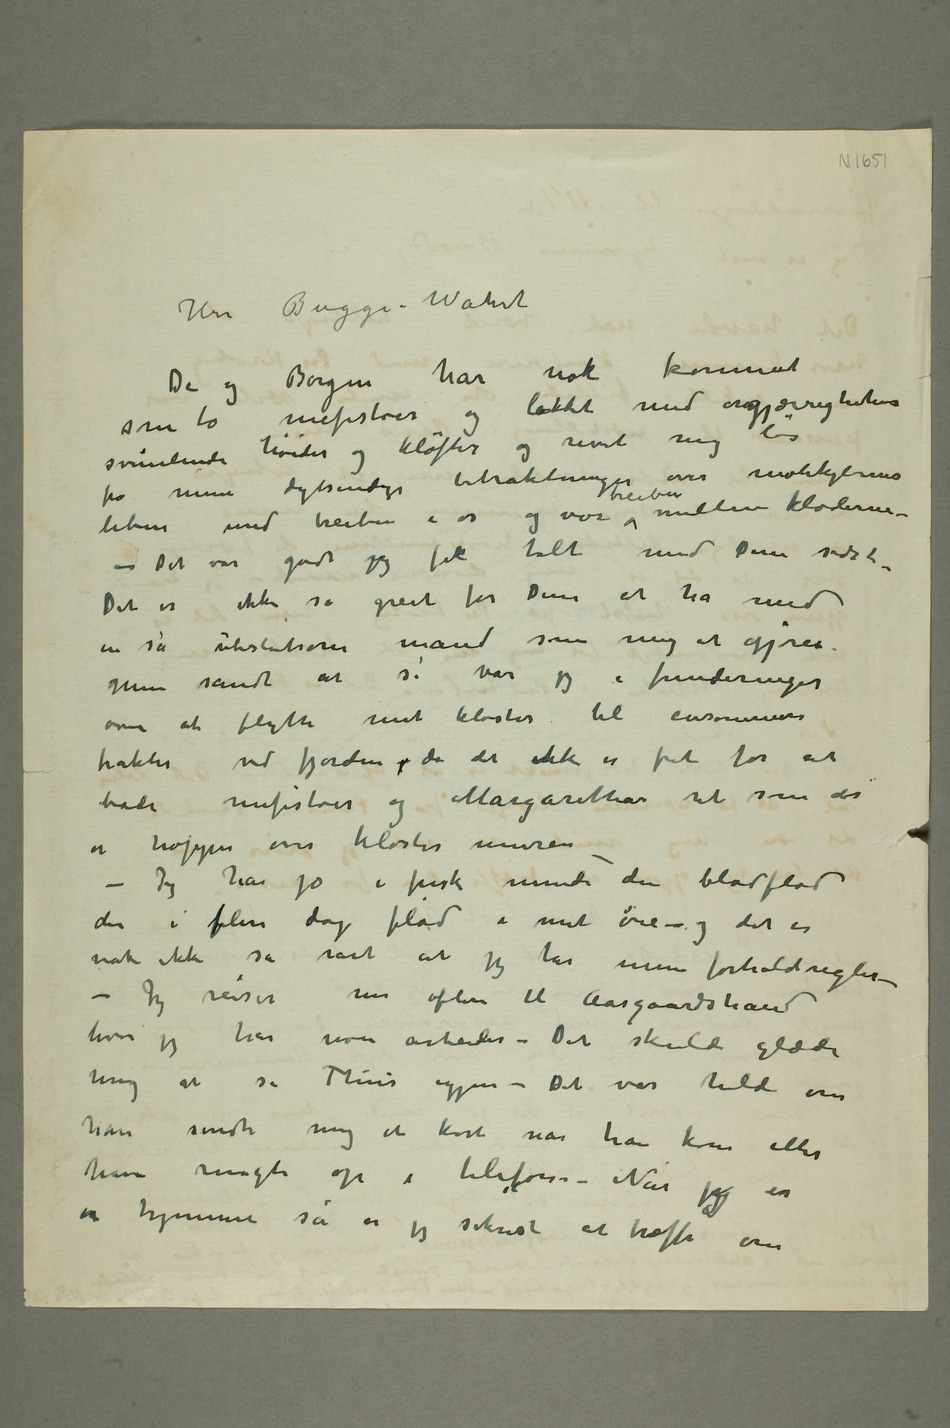 N 1651
Herr Bugge-Wahrt
De og Borgen har nok kommet
som to mefistoer og lokket med ærgjærrighetens
svimlende høider og kløfter og revet mig løs
fra mine dybsindige betraktninger over molekylernes
leben med treiben i os og vor treiben mellem kloderne –
– Det var godt jeg fik talt med Dem sidst –
Det er ikke så greit for Dem at ha med
en så ubestemt mand som mig at gjøre.
Men sandt at si var jeg i funderinger
om at flytte mit kloster til ensommere
trakter ved fjorden da det ikke er frit for at
både mefistoer og Margarether ret som det
er hopper over kloster muren –
– Jeg har jo i frisk minde den blodflod
der i flere dag flød i mit øie – og det er
nok ikke så rart at jeg tar mine forholdregler –
– Jeg reiser nu oftere til Aasgaardstrand
hvor jeg har noen arbeider – Det skulde glæde
mig at se Thiis igjen – Det var helde om
han sendte mig et kort når han kom eller
han ringte op i telefon – Når jeg er
hjemme så er jeg sikrest at træffe om